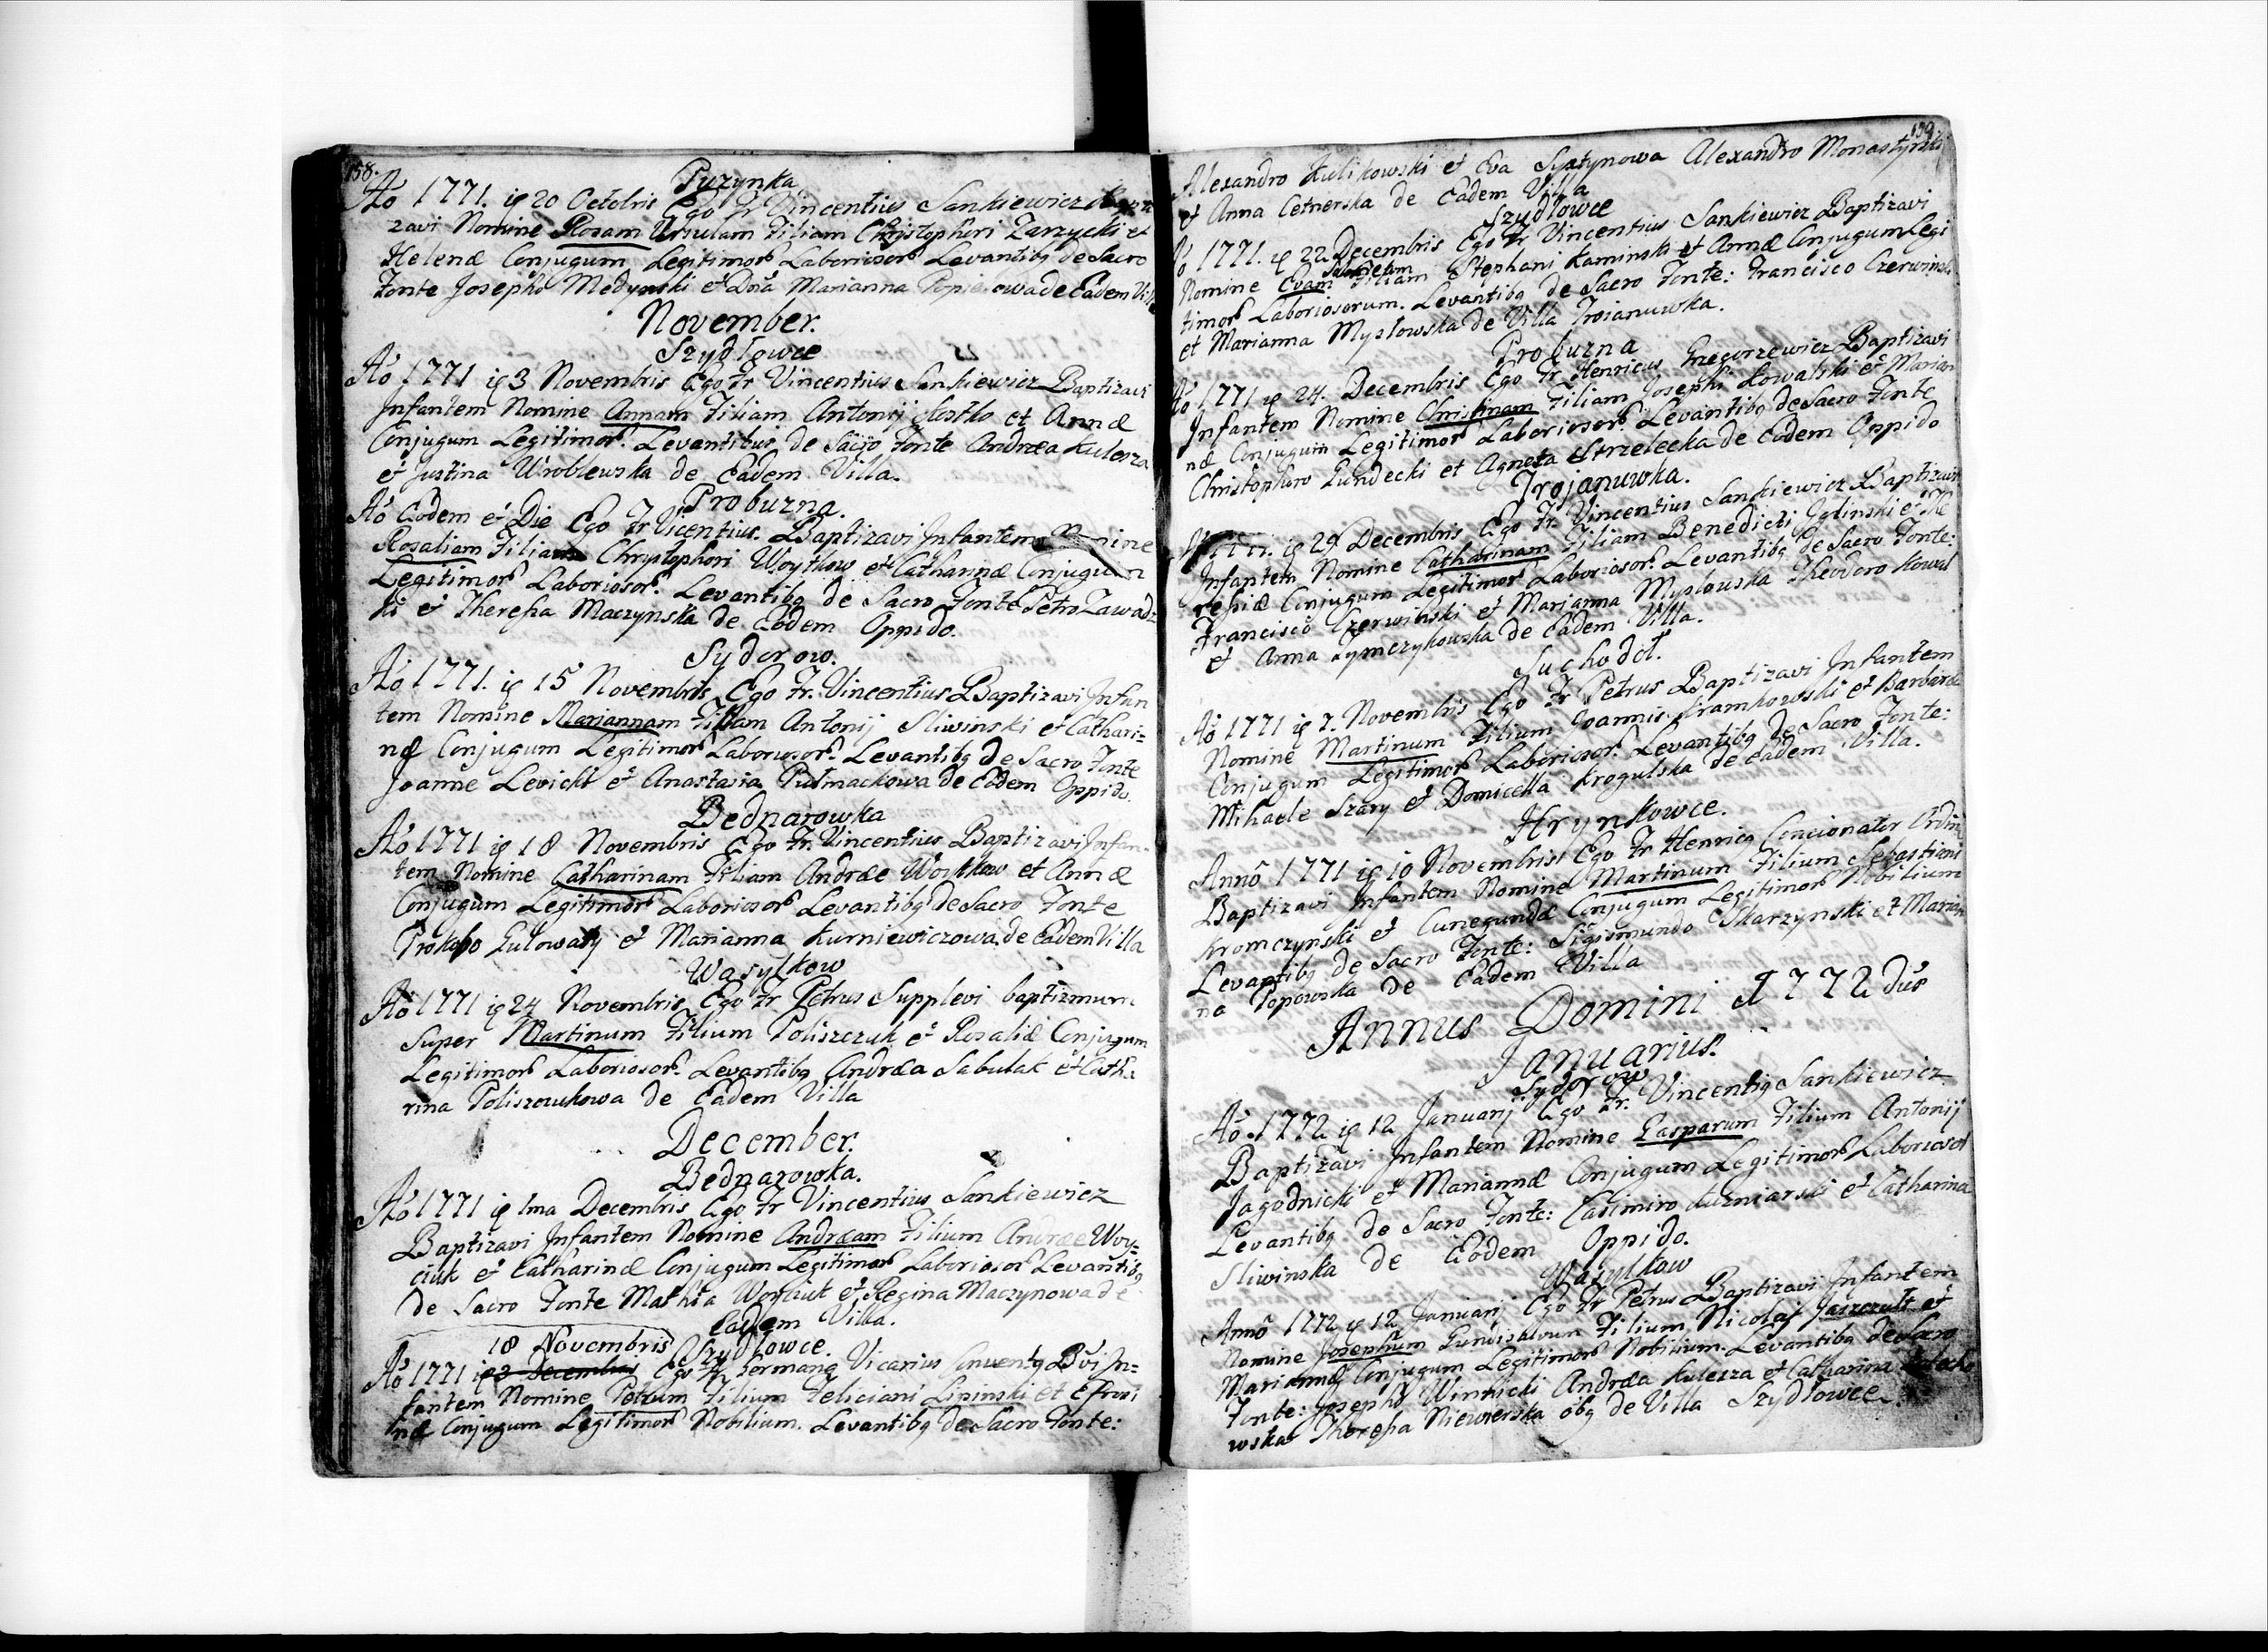 158.
Puzynka
Aõ 1771. ig 20 Octobris Ego Fr Vincentius Sankiewicz
zavi Nomine Rosam Ursulam Filiam Christophori Zarzycki et
Helenæ Conjugum Legitimor Laboriosor Levantibq de Sacro
Fonte Josepho Medynski et Dnã Marianna de Eadem Villa
November.
Szydlowce
Aõ 1771 ig 3 Novembris Ego Fr Vincentius Sankiewicz Baptizavi
Infantem Nomine Annam Filiam Antonij Kostko et Annæ
Conjugum Legitimor. Levantibus de Sacro Fonte Andræa Kulesza
et Justina Wroblewska de Eadem Villa.
Proburzna.
Aõ Eodem et Die Ego Fr Vicentius. Baptizavi Infantem Nomine
Rosaliam Filiam Chrystophori Woytkow et Catharinæ Conjugum
Legitimor Laboriosor. Levantibq de Sacro Fonte Petro Zawadz
ki et Theresia Maczynska de Eodem Oppido.
Sydorow.
Aõ 1771. ig 15 Novembris Ego Fr. Vincentius Baptizavi Infan
tem Nomine Mariannam Filiam Antonij Sliwinski et Cathari=
næ Conjugum Legitimor Laboriosor. Levantibq de Sacro Fonte
Joanne Levicki et Anastasia Putmackowa de Eodem Oppido.
Bednarowka
Aõ 1771 ig 18 Novembris Ego Fr. Vincentius Baptizavi Infan-
tem Nomine Catharinam Filiam Andræe Woytkow et Annæ
Conjugum Legitimor Laboriosor Levantibq de Sacro Fonte
Prokopo Gulowaty et Marianna Kurniewiczowa de Eadem Villa
Wasylkow
Aõ 1771 ig 24 Novembris Ego Fr Petrus Supplevi baptizmum
Super Martinum Filium Poliszczuk et Rosaliæ Conjugum
Legitimor Laboriosor. Levantibq Andræa Sabulak et Catha
rina Poliszczukowa de Eadem Villa
December.
Bednarowka.
Aõ 1771 ig 1ma Decembris Ego Fr Vincentius Sankiewicz
Baptizavi Infantem Nomine Andræam Filium Andræe Woy=
ciuk et Catharinæ Conjugum Legitimor Laboriosor Levantibq
de Sacro Fonte Mathia Woyciuk et Regina Maczynowa de
Eadem Villa.
18 Novembris Szydlowce.
Aõ 1771 ig 3 Decembris Ego Fr Germanq Vicarius Conventq Bvi In-
fantem Nomine Petrum Filium Feliciani Lipinski et Efrosi
næ Conjugum Legitimor Nobilium. Levantibq de Sacro Fonte:
159.
Alexandro Kulikowski et Eva Syatynowa Alexandro Monastyrski
et Anna Cetnerska de Eadem Villa
Szydlowce
Aõ 1771. ig 22 Decembris Ego Fr Vincentius Sankiewicz Baptizavi
Nomine Evam Filiam Stephani Kaminski et Annæ Conjugum Legi
timor Laboriosorum. Levantibq de Sacro Fonte: Francisco Czerwinski
et Marianna Myslowska de Villa Troianuwka.
Proburzna
Aõ 1771 ig 24. Decembris Ego Fr Henricus Gregorzewicz Baptizavi
Infantem Nomine Christinam Filiam Josephi Kowalski et Marian
næ Conjugum Legitimor Laboriosor. Levantibq de Sacro Fonte
Christophoro Gundecki et Agneta Strzelecka de Eodem Oppido
Trojanuwka.
ig 29 Decembris Ego Fr Vincentius Sankiewicz Baptizavi
Infantem Nomine Catharinam Filiam Benedicti Golinski et The
resiæ Conjugum Legitimor Laboriosor. Levantibq de Sacro Fonte:
Francisco Czerwinski et Marianna Myslowska Theodoro Kowal
et Anna Tymczykowska de Eadem Villa.
Suchodoł.
Aõ 1771 ig 7. Novembris Ego Fr Petrus Baptizavi Infantem
Nomine Martinum Filium Joannis Kramkowski et Barbaræ
Conjugum Legitimor Laboriosor. Levantibq de Sacro Fonte:
Mihaele Szary et Domicella Krogulska de Eadem Villa.
Hrynkowce.
Annô 1771 ig 10 Novembris Ego Fr Henricq Concionator Ordin
Baptizavi Infantem Nomine Martinum Filium Sebastiani
Kromczynski et Cunegundæ Conjugum Legitimor Nobilium
Levantibq de Sacro Fonte: Sigismundo Skarzynski et Marian
na Popowska de Eadem Villa
Annus Domini 1772dus
Januarius.
Sydorow
Aõ 1772 ig 12 Januarij Ego Fr. Vincentiq Sankiewicz
Baptizavi Infantem Nomine Gasparum Filium Antonij
Jagodnicki et Mariannæ Conjugum Legitimor Laboriosor
Levantibq de Sacro Fonte: Casimiro Kuzniarski et Catharina
Sliwinska de Eodem Oppido.
Wasylkow
Annô 1772 ig 12 Januarij Ego Fr Petrus Baptizavi Infantem
Nomine Josephum Gundisalvum Filium Nicolaj Jaszczult et
Mariannæ Conjugum Legitimor Nobilium. Levantibq de Sacro
Fonte: Josepho Winnicki Andræa Kulesza et Catharina
wska Theresia Niewierska obq de Villa Szydlowce.